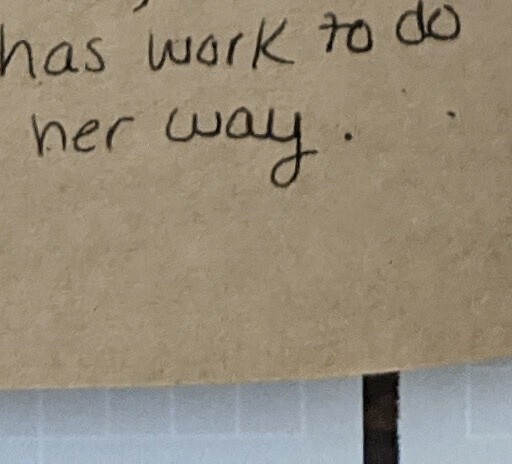 has work to do
her way.